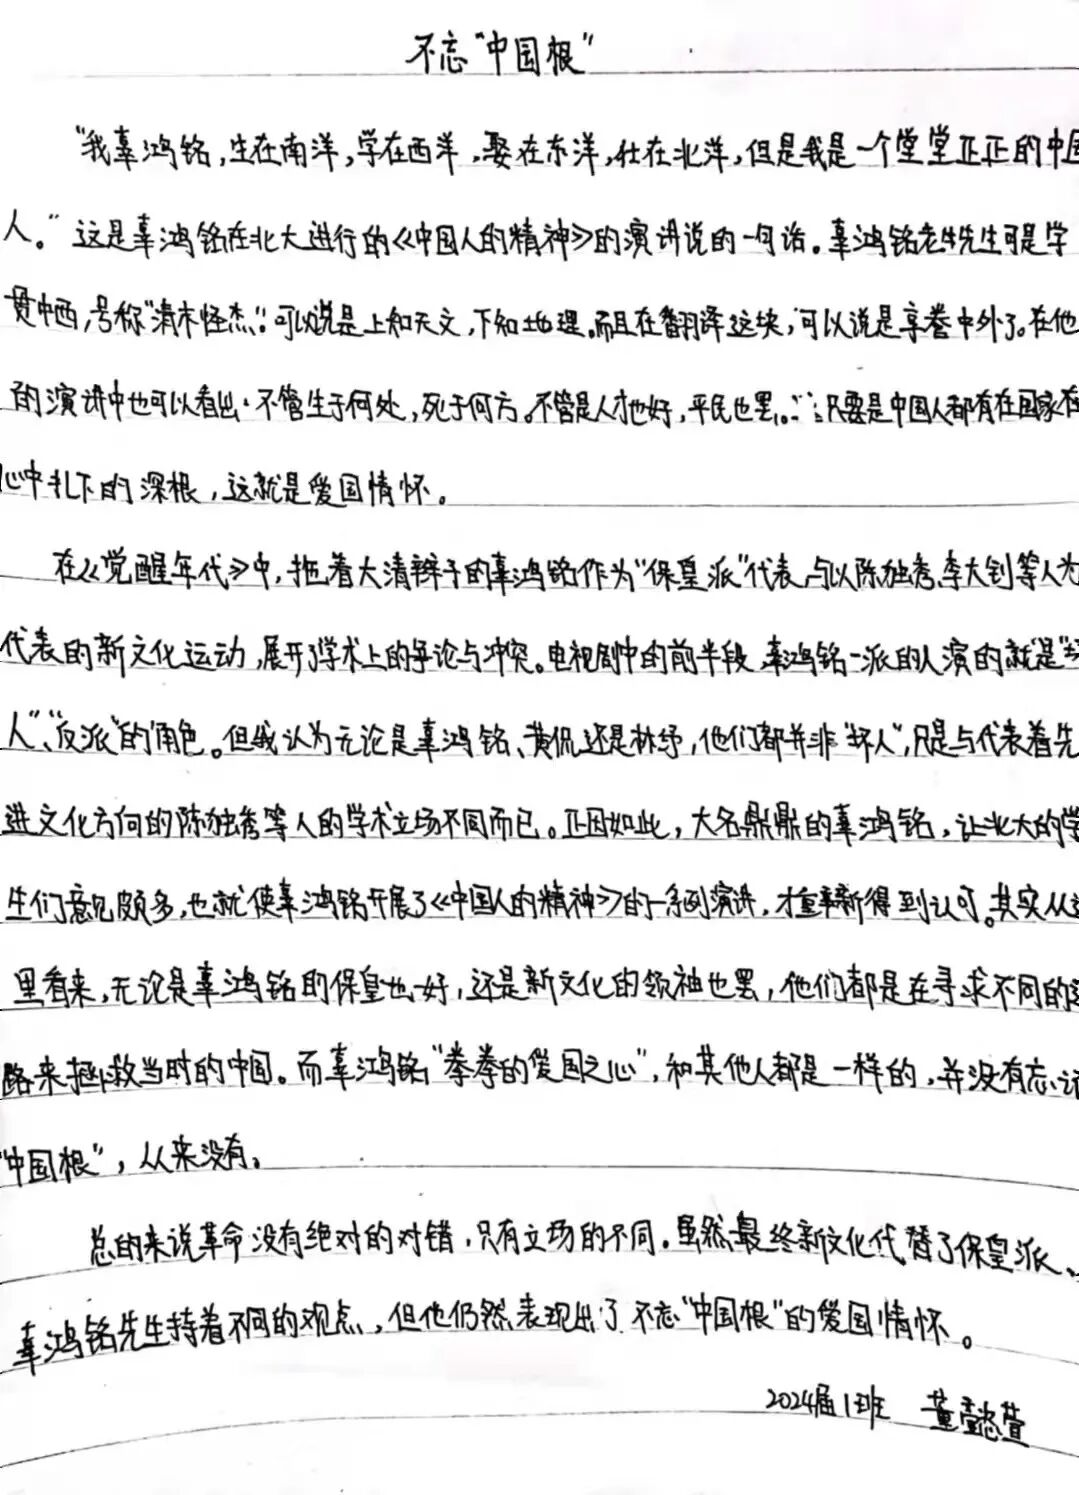 不忘“中国根”
“我辜鸿铭,生在南洋,学在西洋,娶在东洋,仕在北洋,但是我是一个堂堂正正的中国
人。”这是辜鸿铭在北大进行的《中国人的精神》的演讲说的一句话。辜鸿铭老先生可是学
贯中西,号称“清末怪杰”。可以说是上知天文,下知地理。而且在翻译这块,可以说是享誉中外了。在他
的演讲中也可以看出,不管生于何处,死于何方。不管是人才也好,平民也罢。只要是中国人都有在国家在
心中扎下的深根,这就是爱国情怀。
在《觉醒年代》中,拖着大清辫子的辜鸿铭作为“保皇派”代表,与以陈独秀,李大钊等人为
代表的新文化运动,展开了学术上的争论与冲突。电视剧中的前半段,辜鸿铭一派的人演的就是“
人”、“反派”的角色。但我认为无论是辜鸿铭、黄侃还是林纾,他们都并非“坏人”,只是与代表着先
进文化方向的陈独秀等人的学术立场不同而已。正因如此,大名鼎鼎的辜鸿铭,让北大的学
生们意见颇多,也就使辜鸿铭开展了《中国人的精神》的一系列演讲,才重新得到认可。其实从这
里看来,无论是辜鸿铭的保皇也好,还是新文化的领袖也罢,他们都是在寻求不同的道
路来拯救当时的中国。而辜鸿铭“拳拳的爱国之心”,和其他人都是一样的,并没有忘记
“中国根”,从来没有。
总的来说革命没有绝对的对错,只有立场的不同。虽然最终新文化代替了保皇派、
辜鸿铭先生持着不同的观点,但他仍然表现出了不忘“中国根”的爱国情怀。
2024届1班 董懿萱